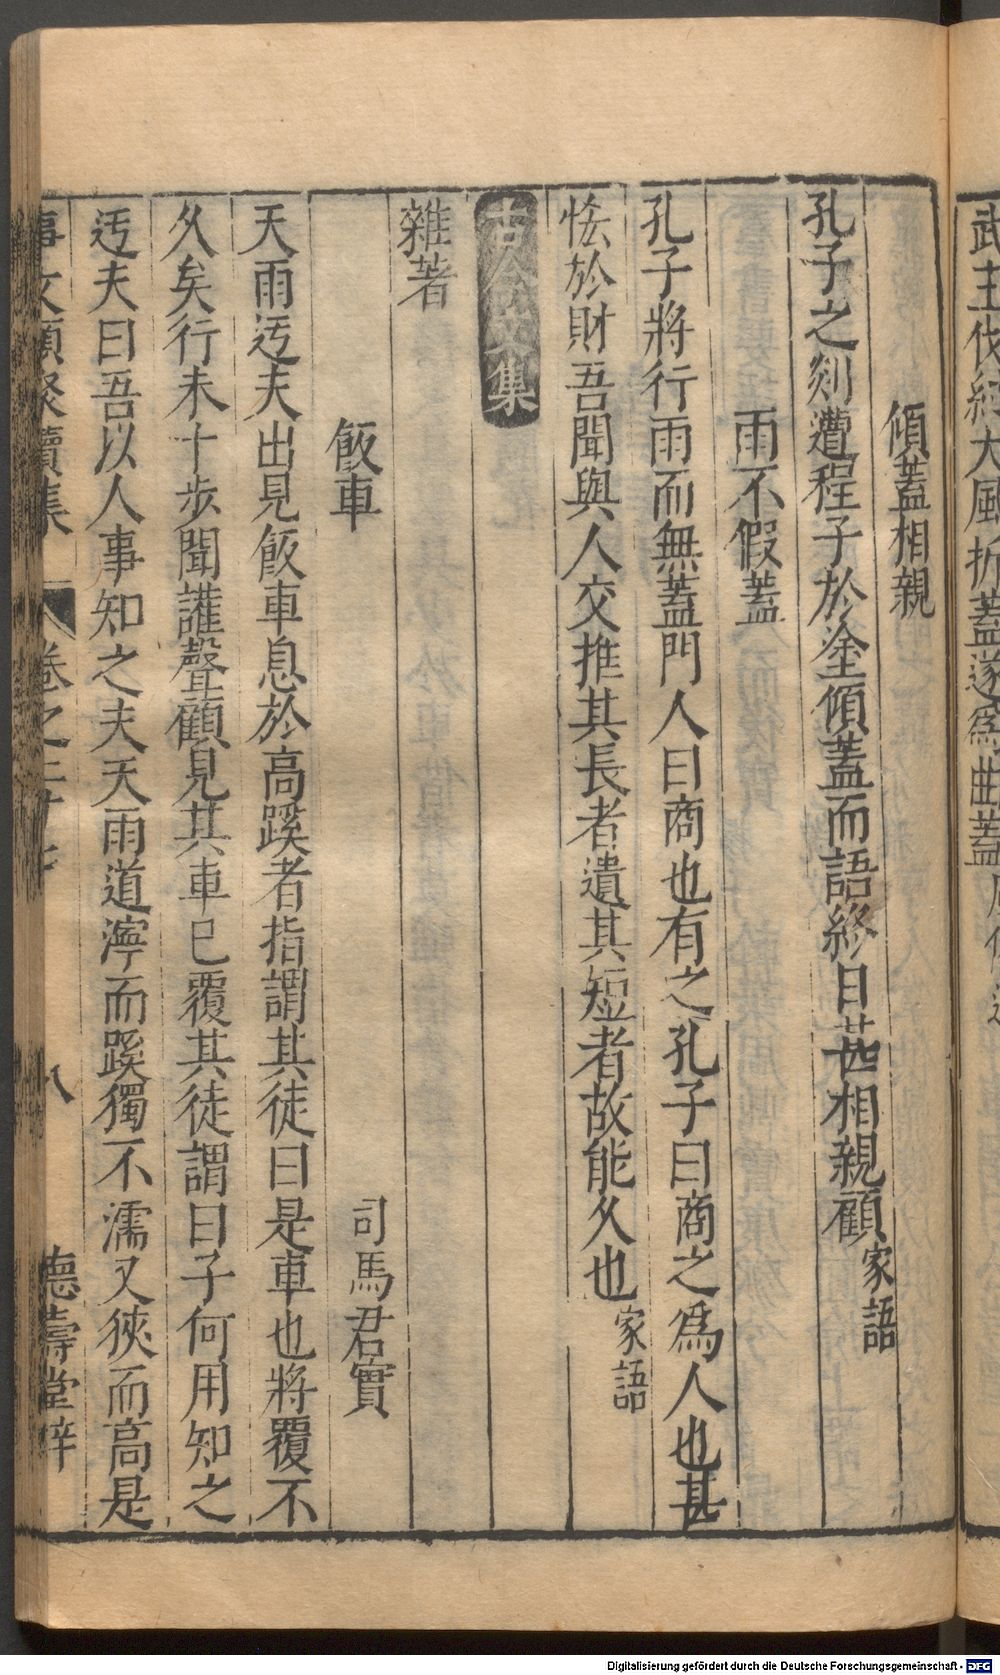 武王伐紂大風折蓋遂為曲蓋
傾蓋相親
孔子之剡遭程子於塗傾蓋而語終日甚相親顧家語
雨不假蓋
孔子將行雨而無蓋門人曰商也有之孔子曰商之為人也甚
恡於財吾聞與人交推其長者遺其短者故能久也家語
古今文集
雜著
飯車 司馬君實
天雨迃夫出見飯車息於高蹊者指謂其徒曰是車也將覆不
久矣行未十步聞讙聲顧見其車已覆其徒謂曰子何用知之
迃夫曰吾以人事知之夫天雨道濘而蹊獨不濡又狹而高是
事文類聚續集 卷之二十七 八 德壽堂梓
Digitalisierung gefördert durch die Deutsche Forschungsgemeinschaft - DFG